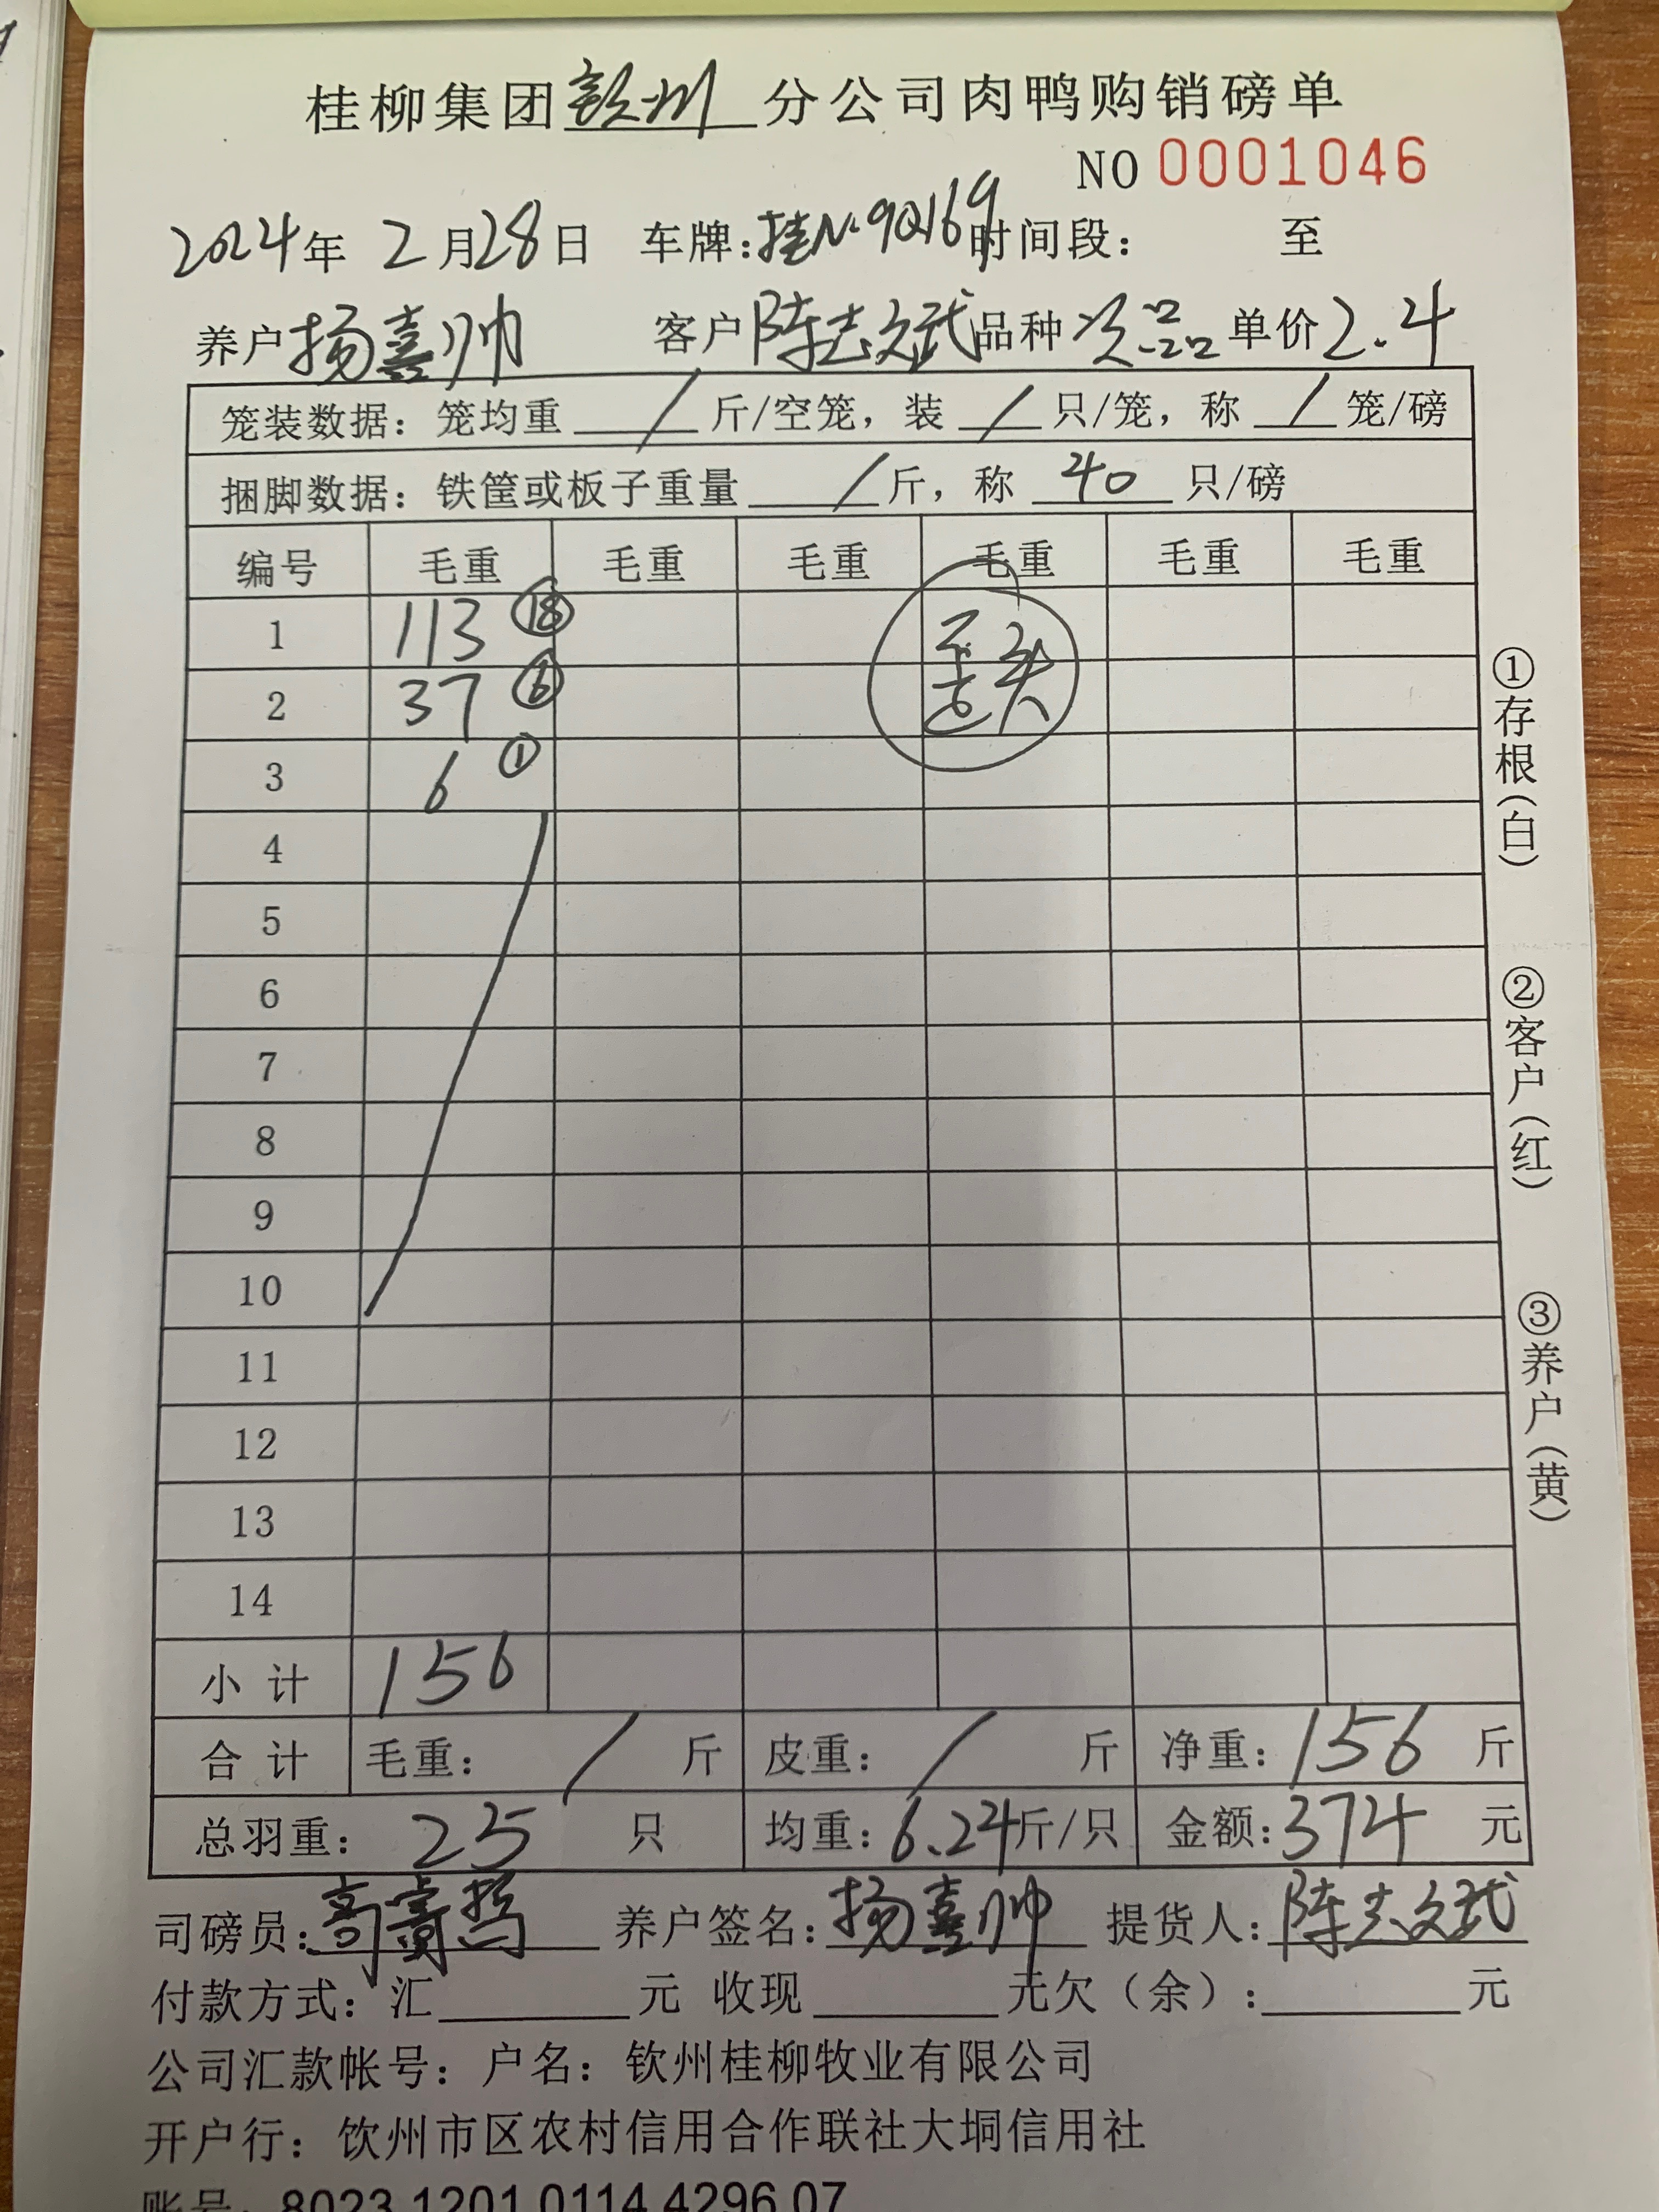 桂柳集团钦州分公司肉鸭购销磅单
NO 0001046
2024年 2月28日 车牌:桂N·9Q169 时间段: 至
养户 杨喜帅 客户 陈志斌 品种 次品 单价 2.4
笼装数据:笼均重 / 斤/空笼,装 / 只/笼,称 / 笼/磅
捆脚数据:铁筐或板子重量 / 斤,称 40 只/磅
编号 毛重 毛重 毛重 毛重 毛重 毛重
1 113 ⑱
2 37 ⑥
3 6 ①
4
5
6
7
8
9
10
11
12
13
14
小计 156
合计 毛重: / 斤 皮重: / 斤 净重:156 斤
总羽重: 25 只 均重:6.24斤/只 金额:374 元
司磅员: 养户签名:杨喜帅 提货人:陈志斌
付款方式:汇 元 收现 元欠(余): 元
公司汇款帐号:户名:钦州桂柳牧业有限公司
开户行:钦州市区农村信用合作联社大垌信用社
账号:8023 1201 0114 4296 07
①存根(白)
②客户(红)
③养户(黄)